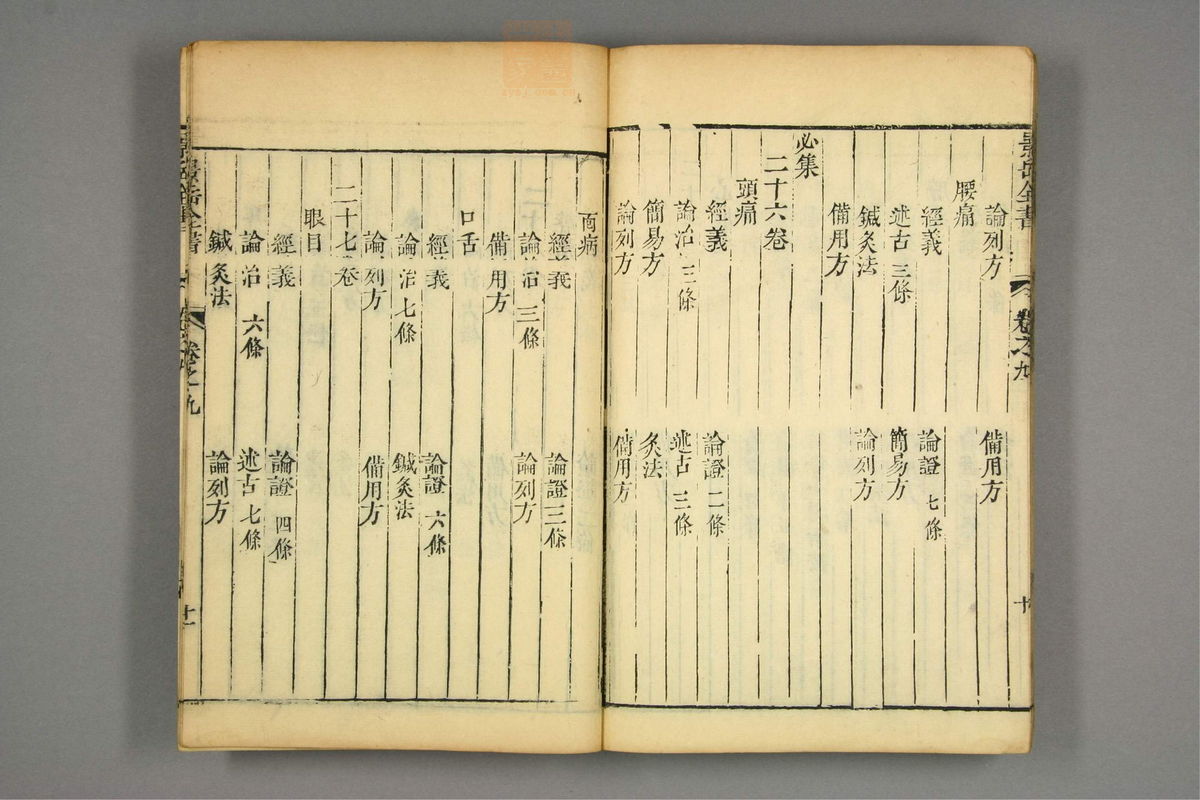 景岳全書
卷之九
十
論列方 備用方
腰痛
經義 論證 七條
述古 三條 簡易方
鍼灸法 論列方
備用方
必集
二十六卷
頭痛
經義 論證 二條
論治 三條 述古 三條
簡易方 灸法
論列方 備用方
面病
經義 論證 三條
論治 三條 論列方
備用方
口舌
經義 論證 六條
論治 七條 鍼灸法
論列方 備用方
二十七卷
眼目
經義 論證 四條
論治 六條 述古 七條
鍼灸法 論列方
景岳全書
卷之九
十一